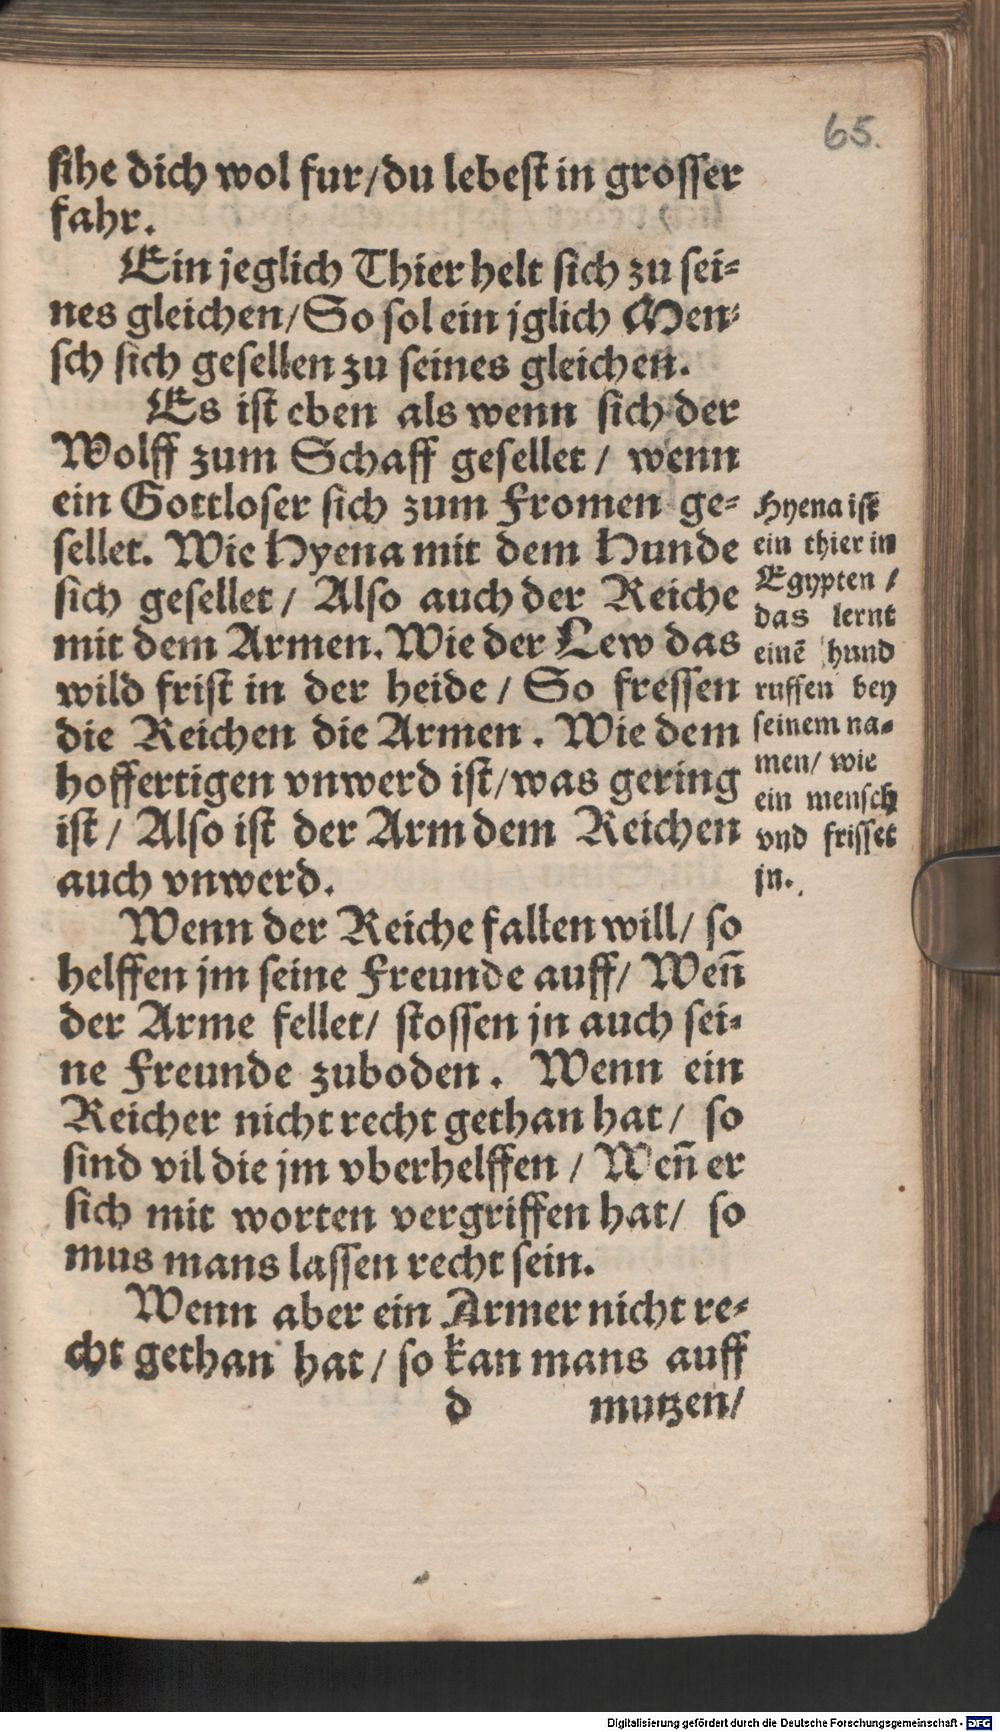 65.
sihe dich wol fur/du lebest in grosser
fahr.
Ein jeglich Thier helt sich zu sei⸗
nes gleichen/So sol ein jglich Men⸗
sch sich gesellen zu seines gleichen.
Es ist eben als wenn sich der
Wolff zum Schaff gesellet / wenn
ein Gottloser sich zum Fromen ge⸗
sellet. Wie Hyena mit dem Hunde
sich gesellet / Also auch der Reiche
mit dem Armen. Wie der Lew das
wild frist in der heide / So fressen
die Reichen die Armen . Wie dem
hoffertigen vnwerd ist/was gering
ist / Also ist der Arm dem Reichen
auch vnwerd.
Hyena ist
ein thier in
Egypten /
das lernt
einē hund
ruffen bey
seinem na⸗
men/ wie
ein mensch
vnd frisset
jn.
Wenn der Reiche fallen will/ so
helffen jm seine Freunde auff/ Wen̄
der Arme fellet/ stossen jn auch sei⸗
ne Freunde zuboden . Wenn ein
Reicher nicht recht gethan hat/ so
sind vil die jm vberhelffen / Wen̄ er
sich mit worten vergriffen hat/ so
mus mans lassen recht sein.
Wenn aber ein Armer nicht re⸗
cht gethan hat / so kan mans auff
d mutzen/
Digitalisierung gefördert durch die Deutsche Forschungsgemeinschaft - DFG